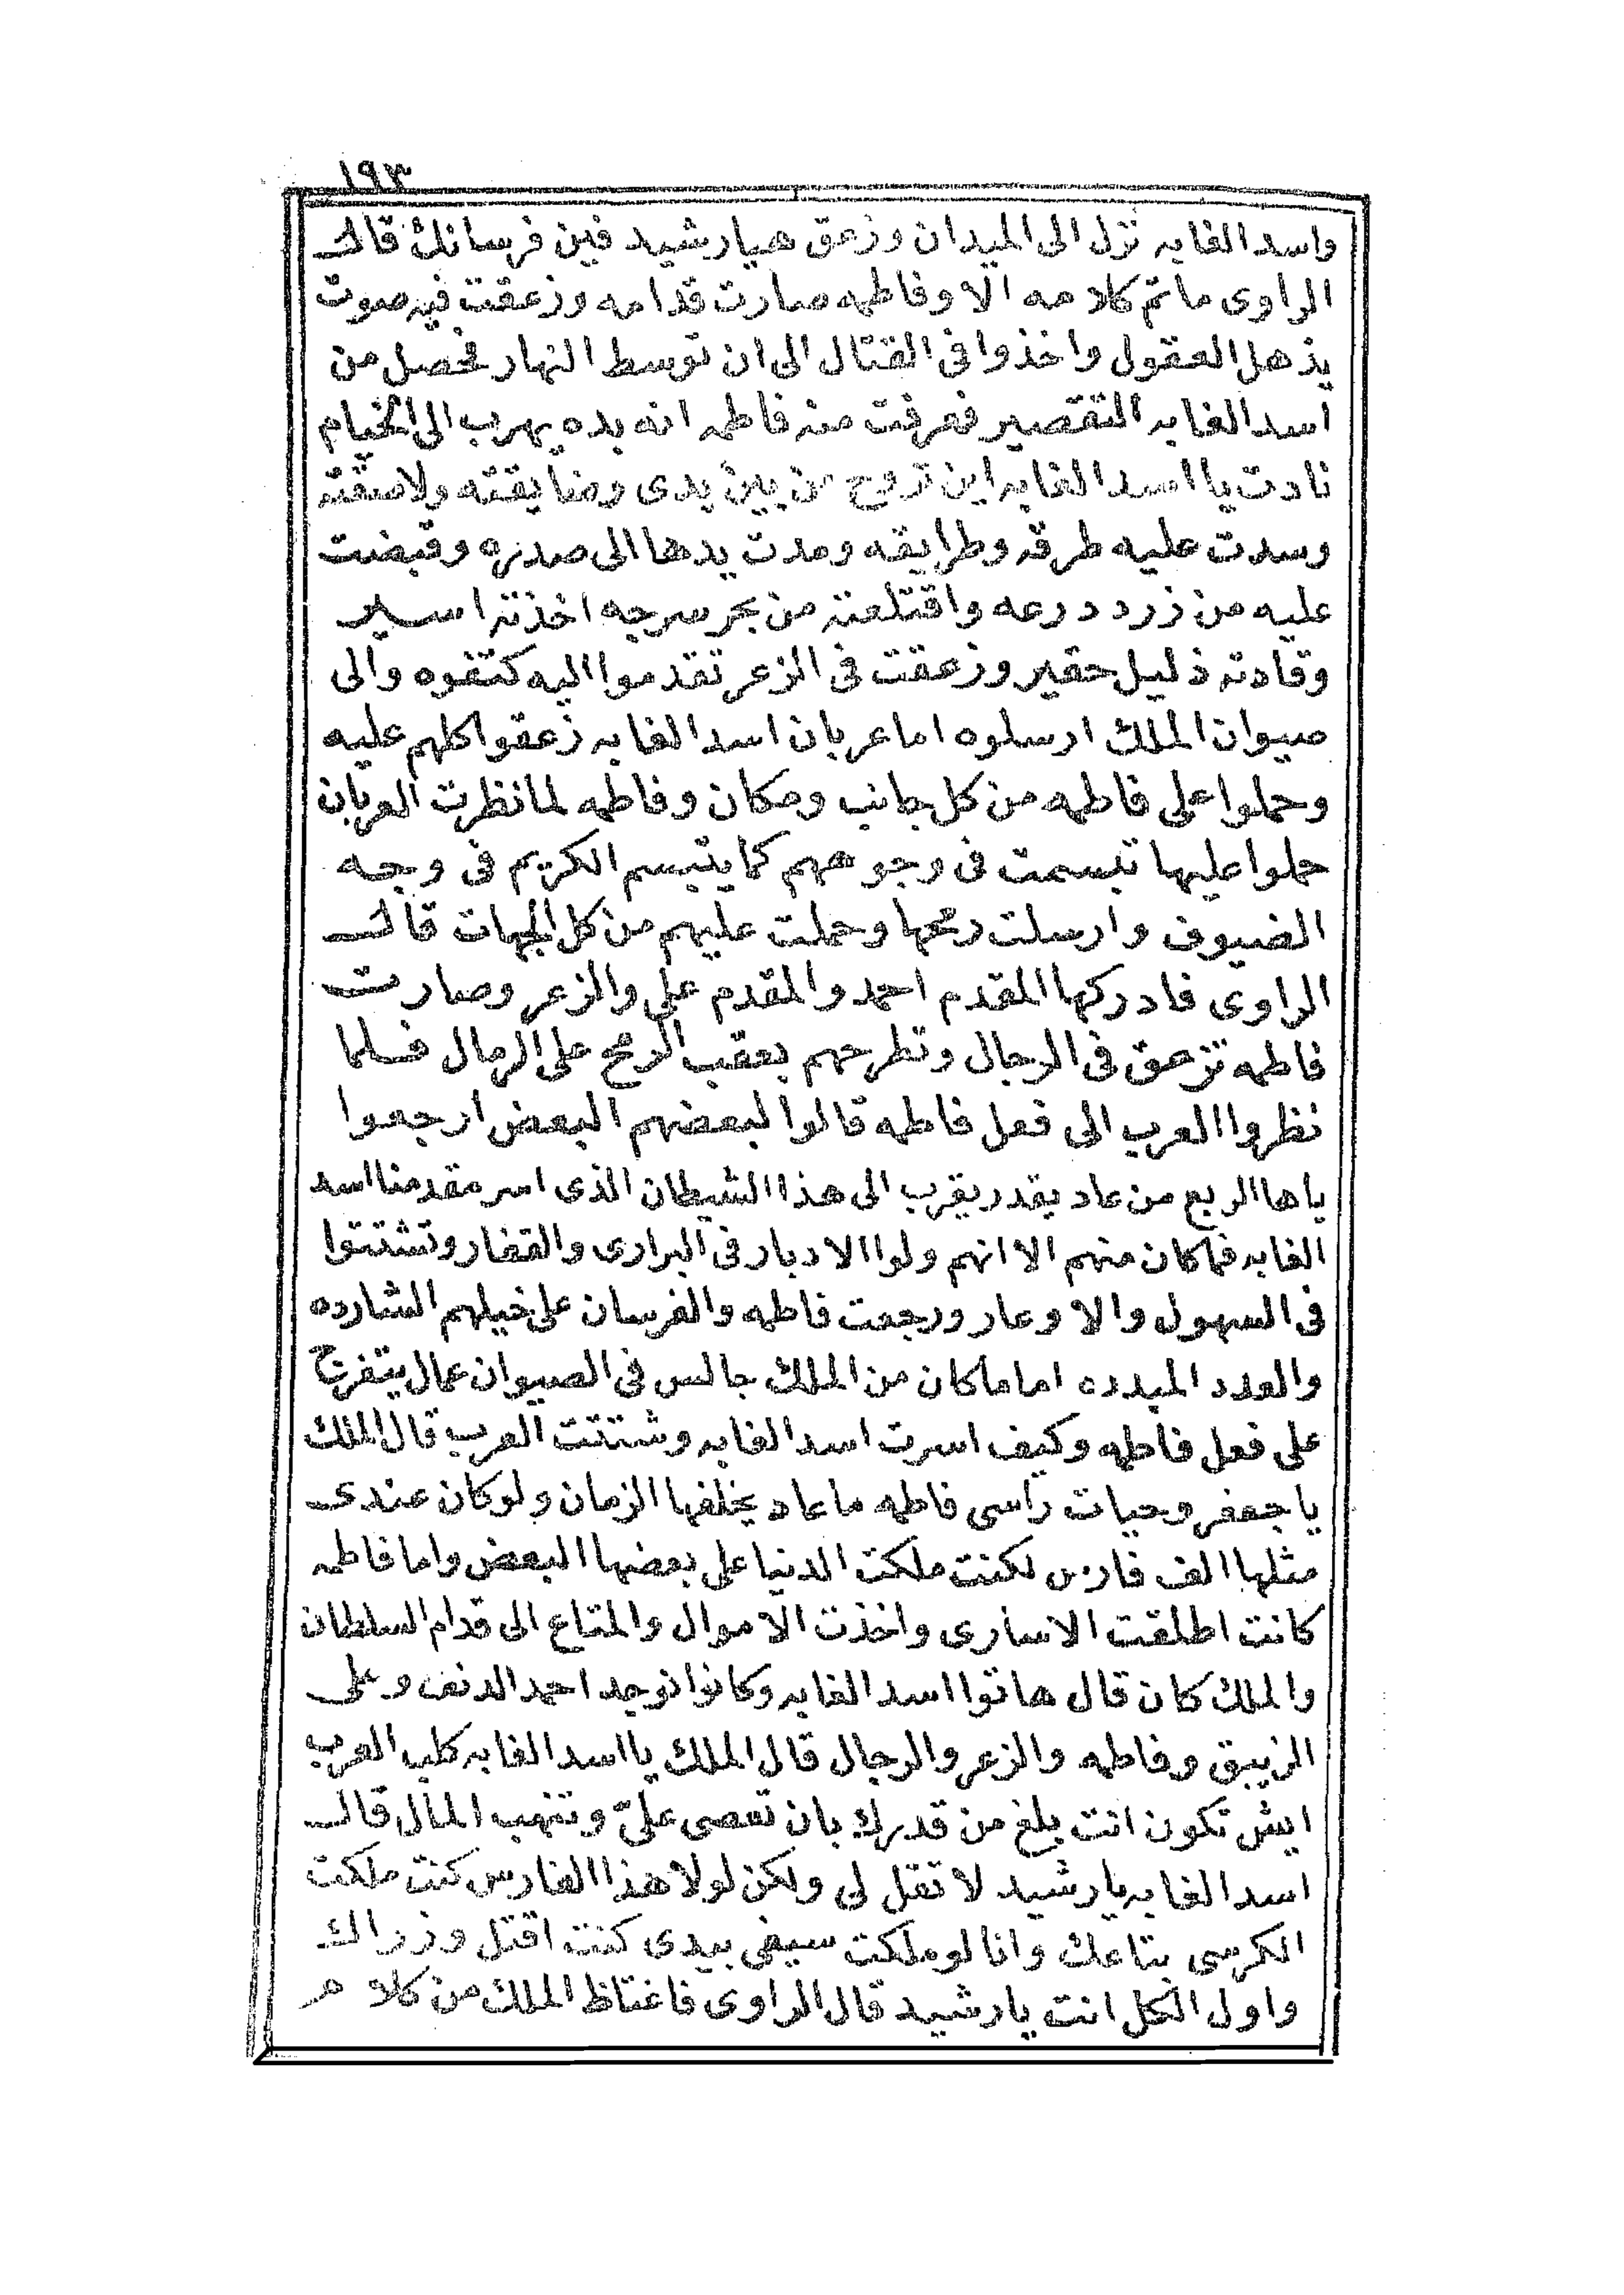 ١٩٣
واسد الغابه نزل الى الميدان وزعق هيا رشيد فين فرسانك قال
الراوى ماتم كلامه الا وفاطمه صارت قدامه وزعقت فيه صوت
يذهل العقول واخذوا فى القتال الى ان توسط النهار فحصل من
اسد الغابه التقصير فعرفت منه فاطمه انه بده يهرب الى الخيام
نادت يا اسد الغابه اين تروح من بين يدى وضايقته ولاصقته
وسدت عليه طرقه وطرايقه ومدت يدها الى صدره وقبضت
عليه من زرد درعه واقتلعته من بحر سرجه اخذته اسير
وقادته ذليل حقير وزعقت فى الزعر تقدموا اليه كتفوه والى
صيوان الملك ارسلوه اما عربان اسد الغابه زعقوا كلهم عليه
وحملوا على فاطمه من كل جانب ومكان وفاطمه لما نظرت العربان
حملوا عليها تبسمت فى وجوههم كما يتبسم الكريم فى وجه
الضيوف وارسلت رمحها وحملت عليهم من كل الجهات قال
الراوى فادركها المقدم احمد والمقدم على والزعر وصارت
فاطمه تزعق فى الرجال وتطرحهم بعقب الرمح على الرمال فلما
نظروا العرب الى فعل فاطمه قالوا لبعضهم البعض ارجعوا
ياها الربع من عاد يقدر يقرب الى هذا الشيطان الذى اسر مقدمنا اسد
الغابه فما كان منهم الا انهم ولوا الادبار فى البرارى والقفار وتشتتوا
فى السهول والاوعار ورجعت فاطمه والفرسان على خيلهم الشارده
والعدد المبدده اما ماكان من الملك جالس فى الصيوان عمال يتفرج
على فعل فاطمه وكيف اسرت اسد الغابه وشتتت العرب قال الملك
يا جعفر وحيات راسى فاطمه ما عاد يخلفها الزمان ولوكان عندى
مثلها الف فارس لكنت ملكت الدنيا على بعضها البعض واما فاطمه
كانت اطلقت الاسارى واخذت الاموال والمتاع الى قدام السلطان
والملك كان قال هاتوا اسد الغابه وكانوا نوجد احمد الدنف وعلى
الزيبق وفاطمه والزعر والرجال قال الملك يا اسد الغابه كلب العرب
ايش تكون انت بلغ من قدرك بان تعصى علىّ وتنهب المال قال
اسد الغابه يا رشيد لا تقل لى ولكن لولا هذا الفارس كنت ملكت
الكرسى بتاعك وانا لو ملكت سيفى بيدى كنت اقتل وزراك
واول الكل انت يا رشيد قال الراوى فاغتاظ الملك من كلام